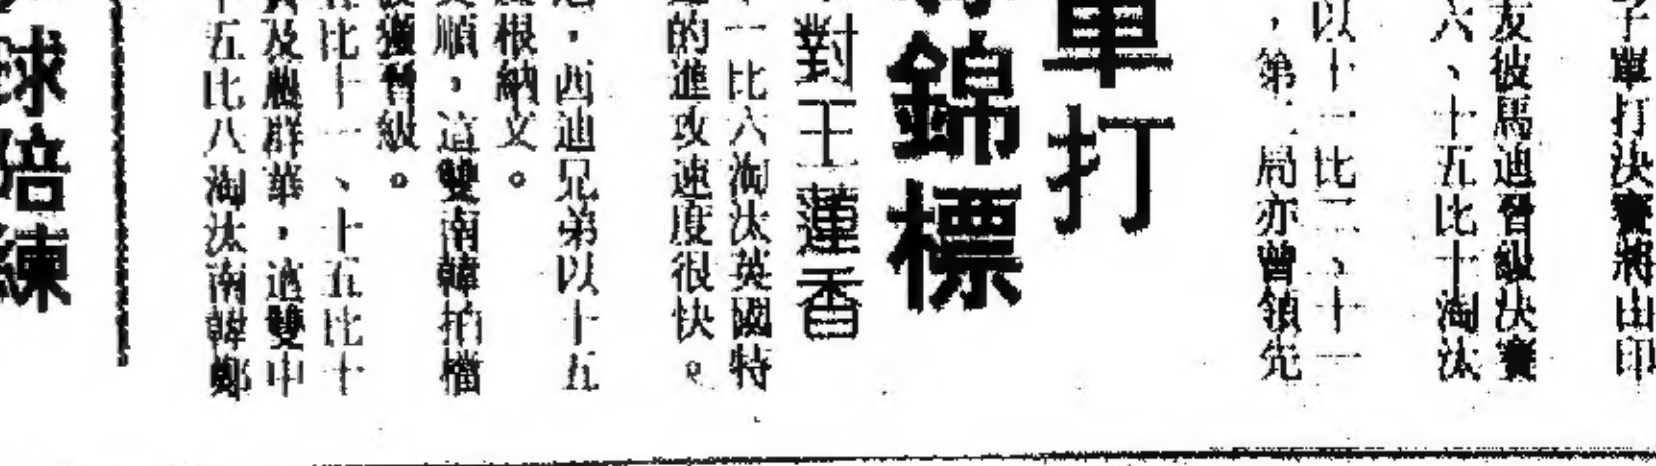 子單打決賽將由印
友彼馬迪晉級決賽
六、十五比十淘汰
以十一比二、十一
，第二局亦曾領先
單打
錦標
對王蓮香
一比六淘汰英國特
的進攻速度很快。
，西迪兄弟以十五
根納文。
順，這雙南韓拍檔
獲晉級。
比十一、十五比十
及應群華，這雙中
五比八淘汰南韓鄭
球培練